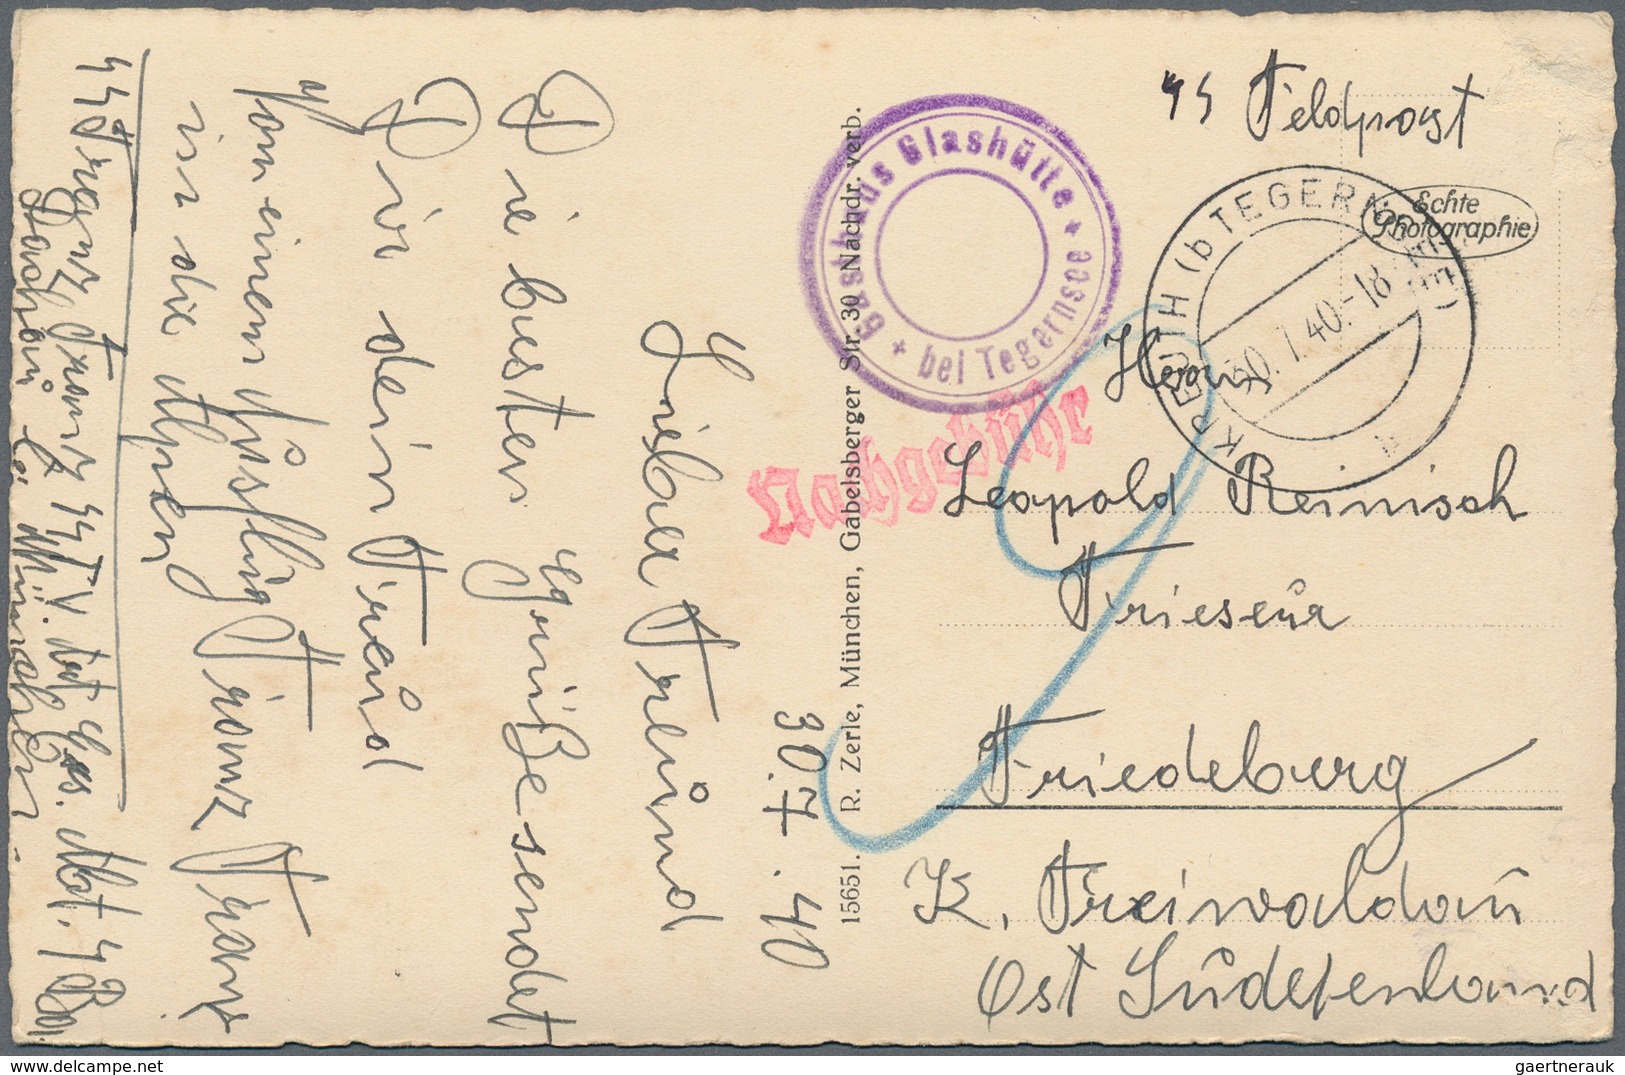 30.7.40
Lieber Freund
Die besten Grüße sendet
Dir dein Freund
Von einem Ausflug Franz Franz
in die Alpen
SS Franz
Dachau b. München.
Gasthaus Glashütte
bei Tegernsee
Nachgebühr
15651. R. Zerle, München, Gabelsberger Str. 30 Nachdr. verb.
SS Feldpost
Echte
Photographie
KREUTH (b TEGERNSEE)
30.7.40.-18
a
Herrn
Leopold Reinisch
Frieseur
Friedeberg
K. Freiwaldau
Ost Sudetenland
gaertnerauk